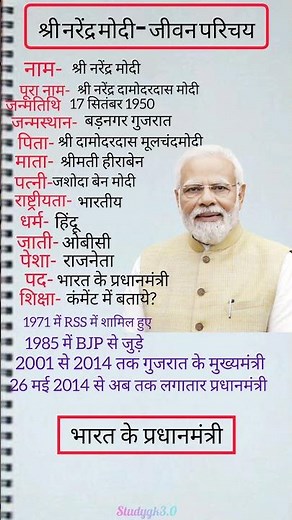 श्री नरेंद्र मोदी- जीवन परिचय
नाम- श्री नरेंद्र मोदी
पूरा नाम- श्री नरेंद्र दामोदरदास मोदी
जन्मतिथि 17 सितंबर 1950
जन्मस्थान- बड़नगर गुजरात
पिता- श्री दामोदरदास मूलचंदमोदी
माता- श्रीमती हीराबेन
पत्नी-जशोदा बेन मोदी
राष्ट्रीयता- भारतीय
धर्म- हिंदू
जाती- ओबीसी
पेशा- राजनेता
पद- भारत के प्रधानमंत्री
शिक्षा- कंमेंट में बताये?
1971 में RSS में शामिल हुए
1985 में BJP से जुड़े
2001 से 2014 तक गुजरात के मुख्यमंत्री
26 मई 2014 से अब तक लगातार प्रधानमंत्री
भारत के प्रधानमंत्री
Studygk3.0